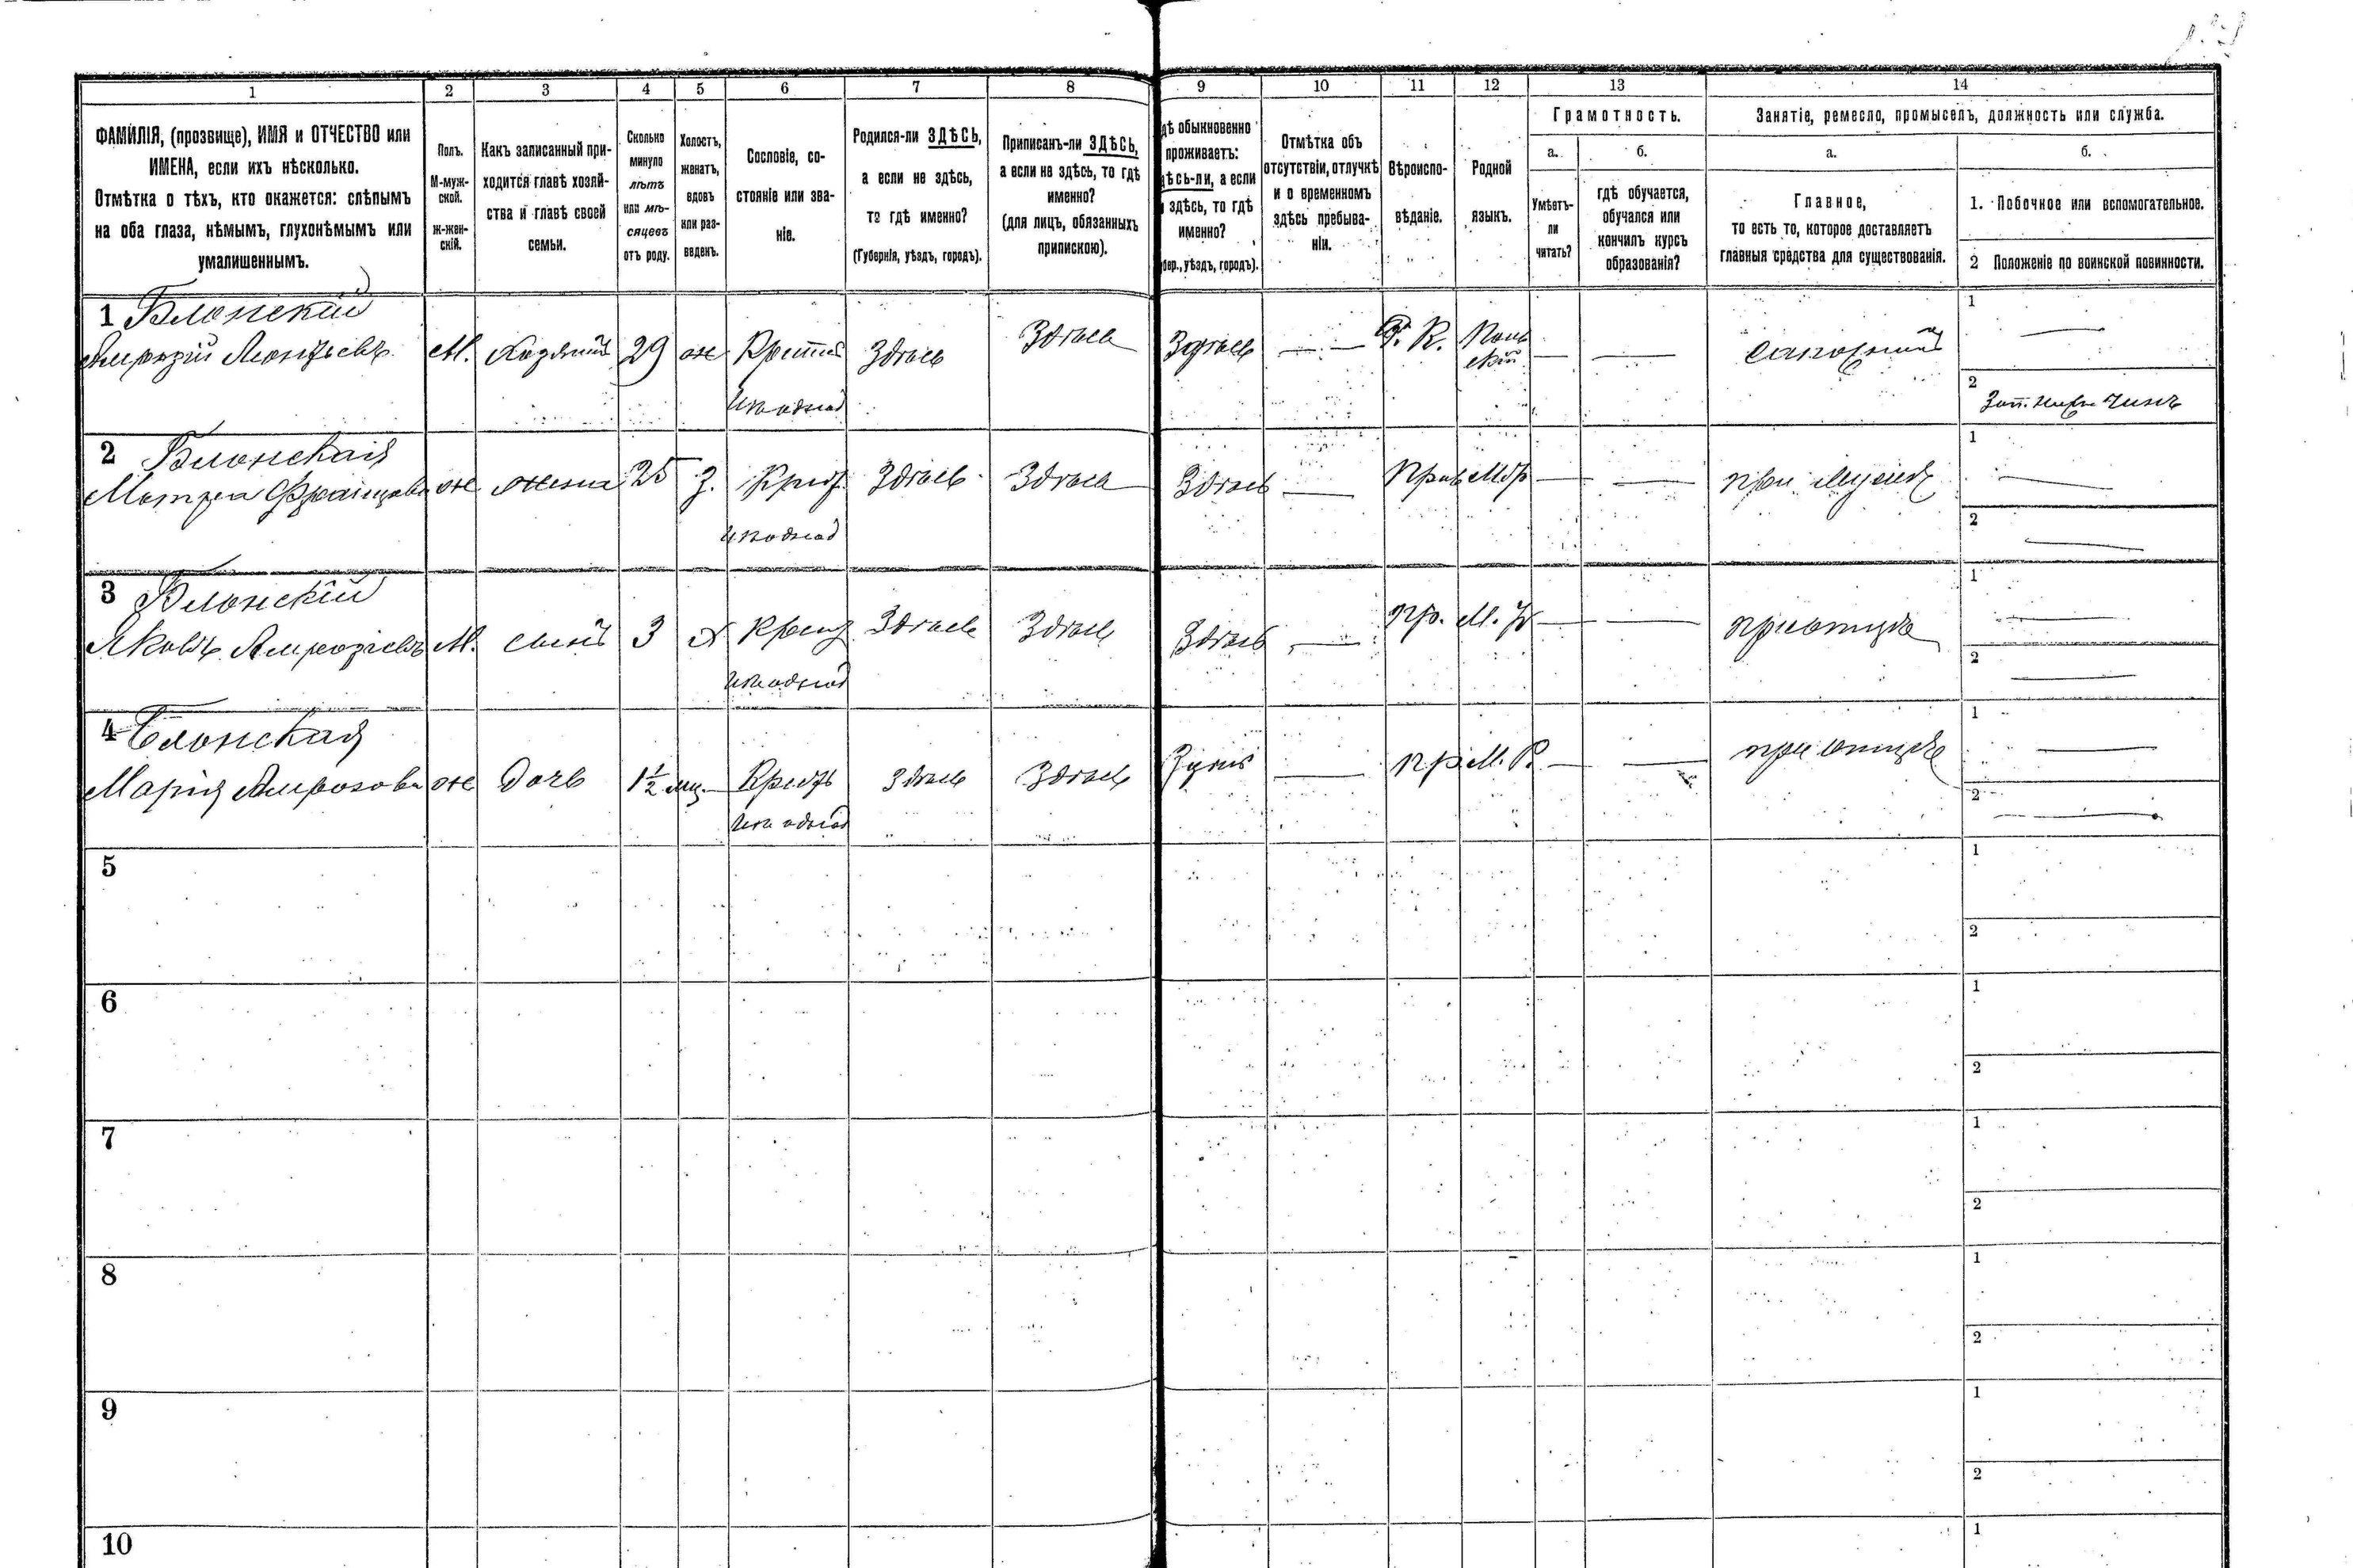 1
2
3
4
5
6
7
8
9
10
11
12
13
14
ФАМИЛІЯ, (прозвище), ИМЯ и ОТЧЕСТВО или
ИМЕНА, если ихъ нѣсколько.
Отмѣтка о тѣхъ, кто окажется: слѣпымъ
на оба глаза, нѣмымъ, глухонѣмымъ или
умалишеннымъ.
Полъ.
М-муж-
ской.
ж-жен-
скій.
Какъ записанный при-
ходится главѣ хозяй-
ства и главѣ своей
семьи.
Сколько
минуло
лѣтъ
или мѣ-
сяцевъ
отъ роду.
Холостъ,
женатъ,
вдовъ
или раз-
веденъ.
Сословіе, со-
стояніе или зва-
ніе.
Родился-ли ЗДѢСЬ,
а если не здѣсь,
то гдѣ именно?
(Губернія, уѣздъ, городъ).
Приписанъ-ли ЗДѢСЬ,
а если не здѣсь, то гдѣ
именно?
(для лицъ, обязанныхъ
припискою).
дѣ обыкновенно
проживаетъ:
ѣсь-ли, а если
здѣсь, то гдѣ
именно?
бер., уѣздъ, городъ).
Отмѣтка объ
отсутствіи, отлучкѣ
и о временномъ
здѣсь пребыва-
ніи.
Вѣроиспо-
вѣданіе.
Родной
языкъ.
Грамотность.
а.
Умѣетъ-
ли
читать?
б.
гдѣ обучается,
обучался или
кончилъ курсъ
образованія?
Занятіе, ремесло, промыселъ, должность или служба.
а.
Главное,
то есть то, которое доставляетъ
главныя средства для существованія.
б.
1. Побочное или вспомогательное.
2 Положеніе по воинской повинности.
1 Блонскій
Амрозій М. Хозяинъ 29 ж Здѣсь Здѣсь Здѣсь — — Р. К. Поль
скій — — 1 —
2 Зап. Нижн. Чинъ
2 Блонская
Матрена Францова ж жена 25 З. Здѣсь Здѣсь Здѣсь — — — при мужѣ 1 —
2 —
3 Блонскій
Яковъ Амрозіевъ М. сынъ 3 Х Здѣсь Здѣсь Здѣсь — Пр. — — при отцѣ 1 —
2 —
4 Блонская
Марія Амрозова ж дочь 1½ Здѣсь Здѣсь — пр М. Р. — — при отцѣ 1 —
2 —
5 1
2
6 1
2
7 1
2
8 1
2
9 1
2
10 1